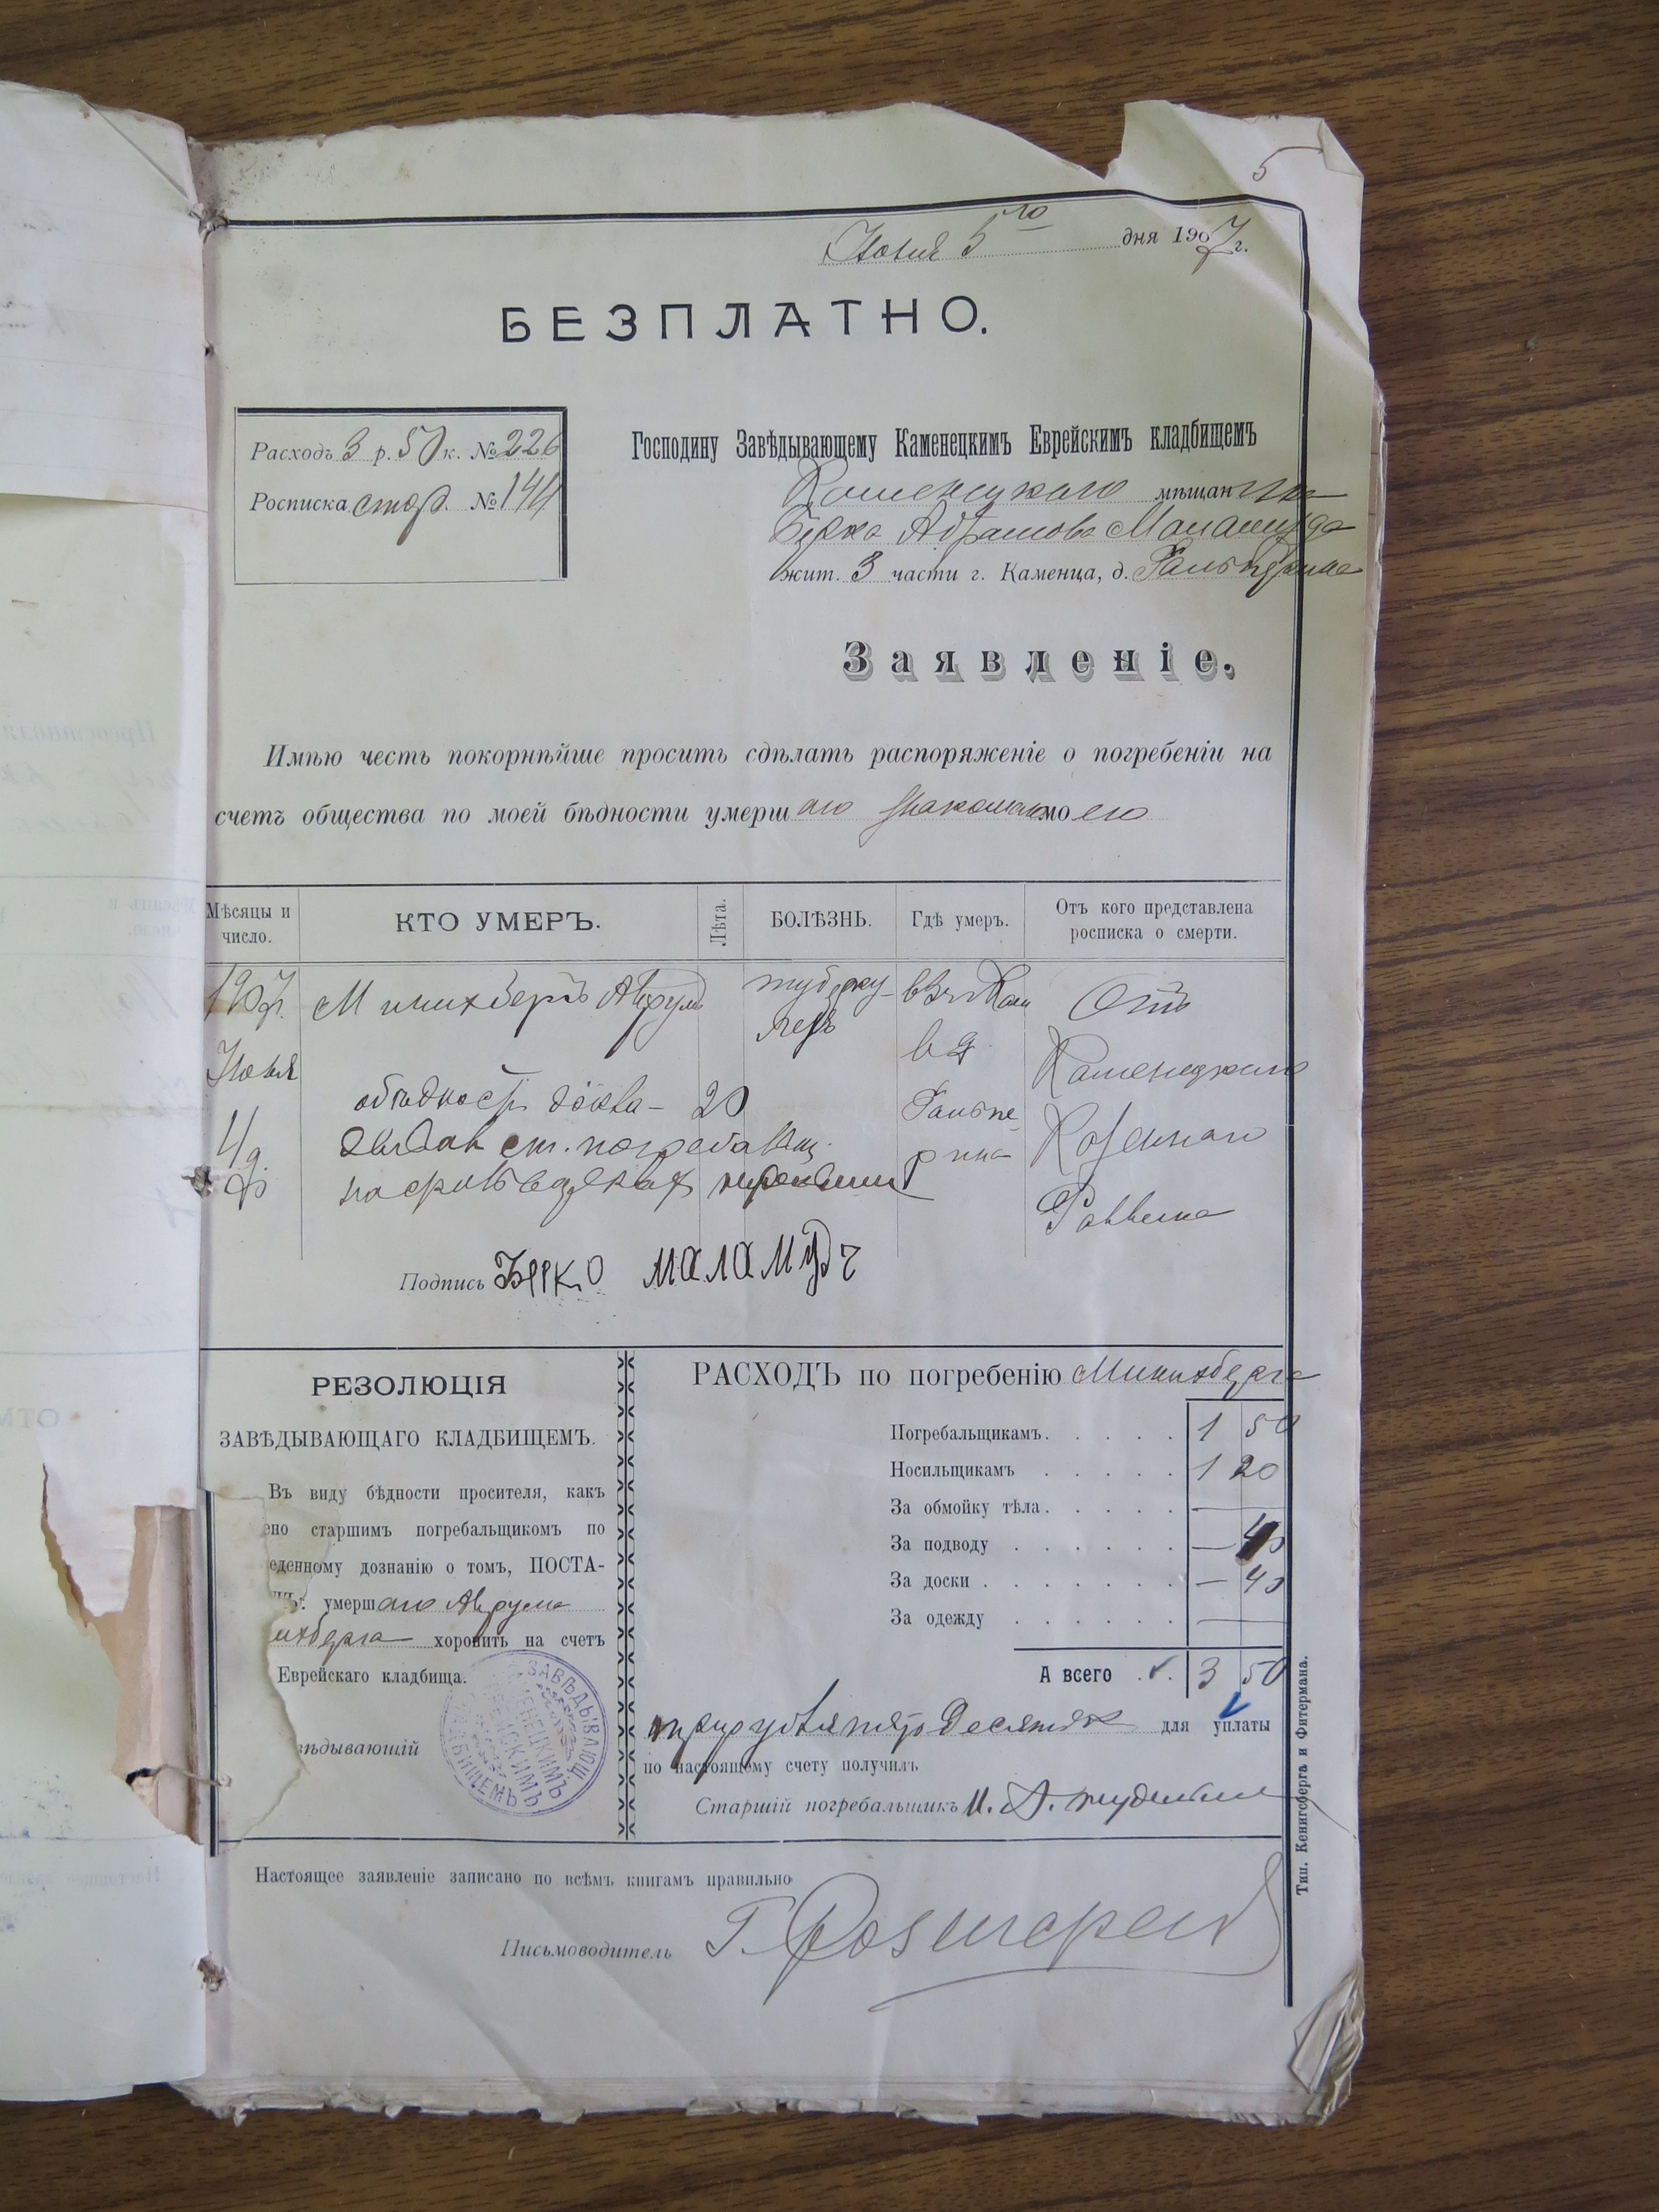 5
Іюня 5го дня 1907 г.
БЕЗПЛАТНО.
Расходъ 3 р. 50 к. № 226
Росписка стор. № 144
Господину Завѣдывающему Каменецкимъ Еврейскимъ кладбищемъ
Каменецкаго мѣщанина
Берка Абрамова Маламуда
жит. 3 части г. Каменца, д. Гальперина
Заявленіе.
Имѣю честь покорнѣйше просить сдѣлать распоряженіе о погребеніи на
счетъ общества по моей бѣдности умершаго знакомаго моего
Мѣсяцы и число.
КТО УМЕРЪ.
Лѣта.
БОЛѢЗНЬ.
Гдѣ умеръ.
Отъ кого представлена росписка о смерти.
1907 г.
Іюня
4 д.
Минихбергъ Аврумъ
о бѣдности
ст. погребальщ.
20
туберку-
лезъ
в д.
Гальпе-
рина
Отъ
Каменецкаго
Казеннаго
Раввина
Подпись Берко Маламудъ
РЕЗОЛЮЦІЯ
ЗАВѢДЫВАЮЩАГО КЛАДБИЩЕМЪ.
Въ виду бѣдности просителя, какъ
ено старшимъ погребальщикомъ по
еденному дознанію о томъ, ПОСТА-
умершаго Аврума
ихберга хоронить на счетъ
Еврейскаго кладбища.
ѣдывающій
ЗАВѢДЫВАЮЩ. КАМЕНЕЦКИМЪ ЕВРЕЙСКИМЪ КЛАДБИЩЕМЪ
РАСХОДЪ по погребенію Минихберга
Погребальщикамъ. 1 50
Носильщикамъ 1 20
За обмойку тѣла. —
За подводу — 40
За доски — 40
За одежду —
А всего 3 50
три руб. пятьдесятъ к для уплаты
по настоящему счету получилъ
Старшій погребальщикъ
Настоящее заявленіе записано по всѣмъ книгамъ правильно
Письмоводитель Г.
Тип. Кенигсберга и Фитермана.